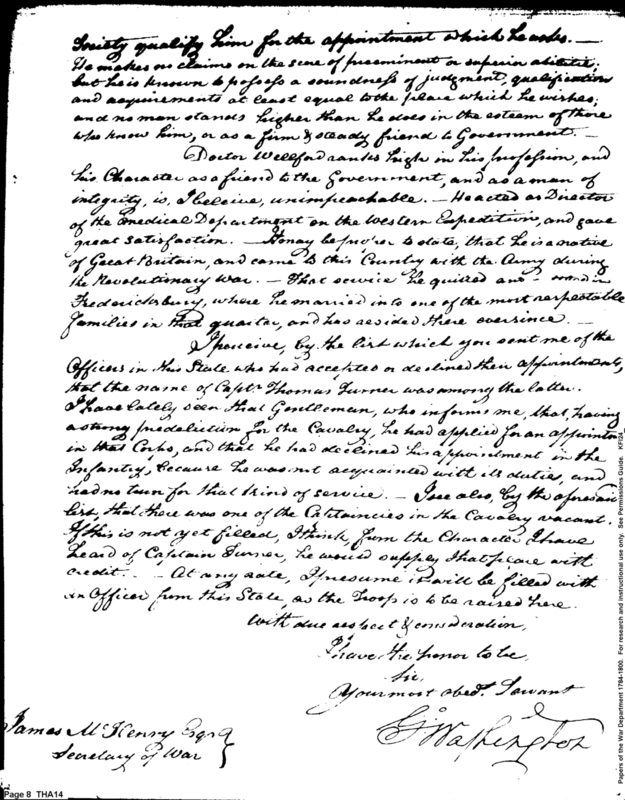 Society qualify him for the appointment which he asks. —
He makes no claims on the score of preeminent or superior abilities;
but he is known to possess a soundness of judgment, qualification
and acquirements at least equal to the place which he wishes;
and no man stands higher than he does in the esteem of those
who know him, or as a firm & steady friend to Government. —
Doctor Wellford ranks high in his profession, and
his Character as a friend to the Government, and as a man of
integrity, is, I beleive, unimpeachable. — He acted as Director
of the Medical Department on the Western Expedition, and gave
great satisfaction. — It may be proper to state, that he is a native
of Great Britain, and came to this Country with the Army during
the Revolutionary War. — That service he quitted and
Fredericksburg, where he married into one of the most respectable
families in that quarter, and has resided there ever since. —
I perceive, by the list which you sent me of the
Officers in this State who had accepted or declined their appointments,
that the name of Captn. Thomas Turner was among the latter.
I have lately seen that Gentleman, who informs me, that, having
a strong predilection for the Cavalry, he had applied for an appointm
in that Corps, and that he had declined his appointment in the
Infantry, because he was not acquainted with its duties, and
had no turn for that kind of service. — I see also, by the aforesaid
list, that there was one of the Captaincies in the Cavalry vacant.
If this is not yet filled, I think, from the Character I have
heard of Captain Turner, he would supply that place with
credit. — At any rate, I presume it will be filled with
an Officer from this State, as the Troop is to be raised here.
With due respect & consideration,
I have the honor to be
Sir,
Your most obedt. Servant
Go: Washington
James McHenry Esqr.
Secretary of War }
Page 8 THA14
Papers of the War Department 1784-1800. For research and instructional use only. See Permissions Guide. KFI24